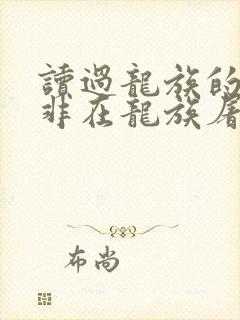 讀過龍族的
非在龍族屠
布尚